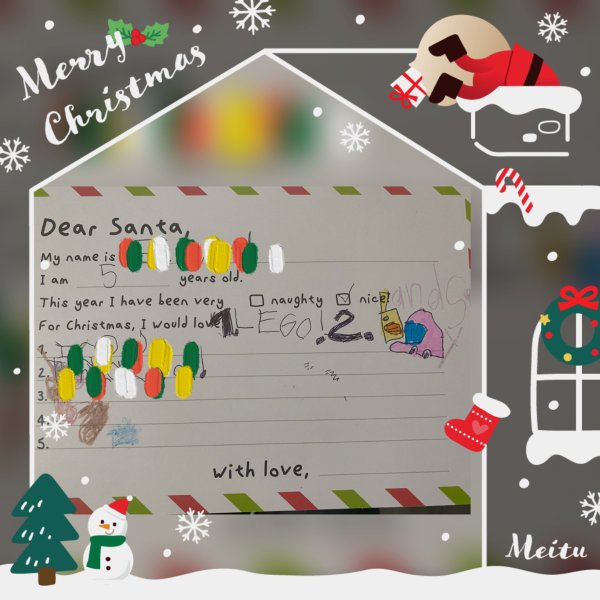 Merry
Christmas
Dear Santa,
My name is
I am 5 years old.
This year I have been very naughty nice!
For Christmas, I would love
1 LEGO! 2.
1.
2.
3.
4.
5.
with love,
Meitu